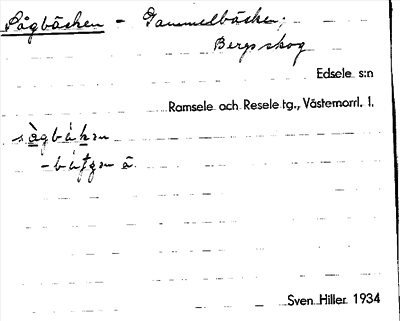 Sågbäcken - Dammedbäcken;
Bergsskog
Edsele s:n
Ramsele och Resele tg., Västernorrl. l.
Sven Hiller 1934